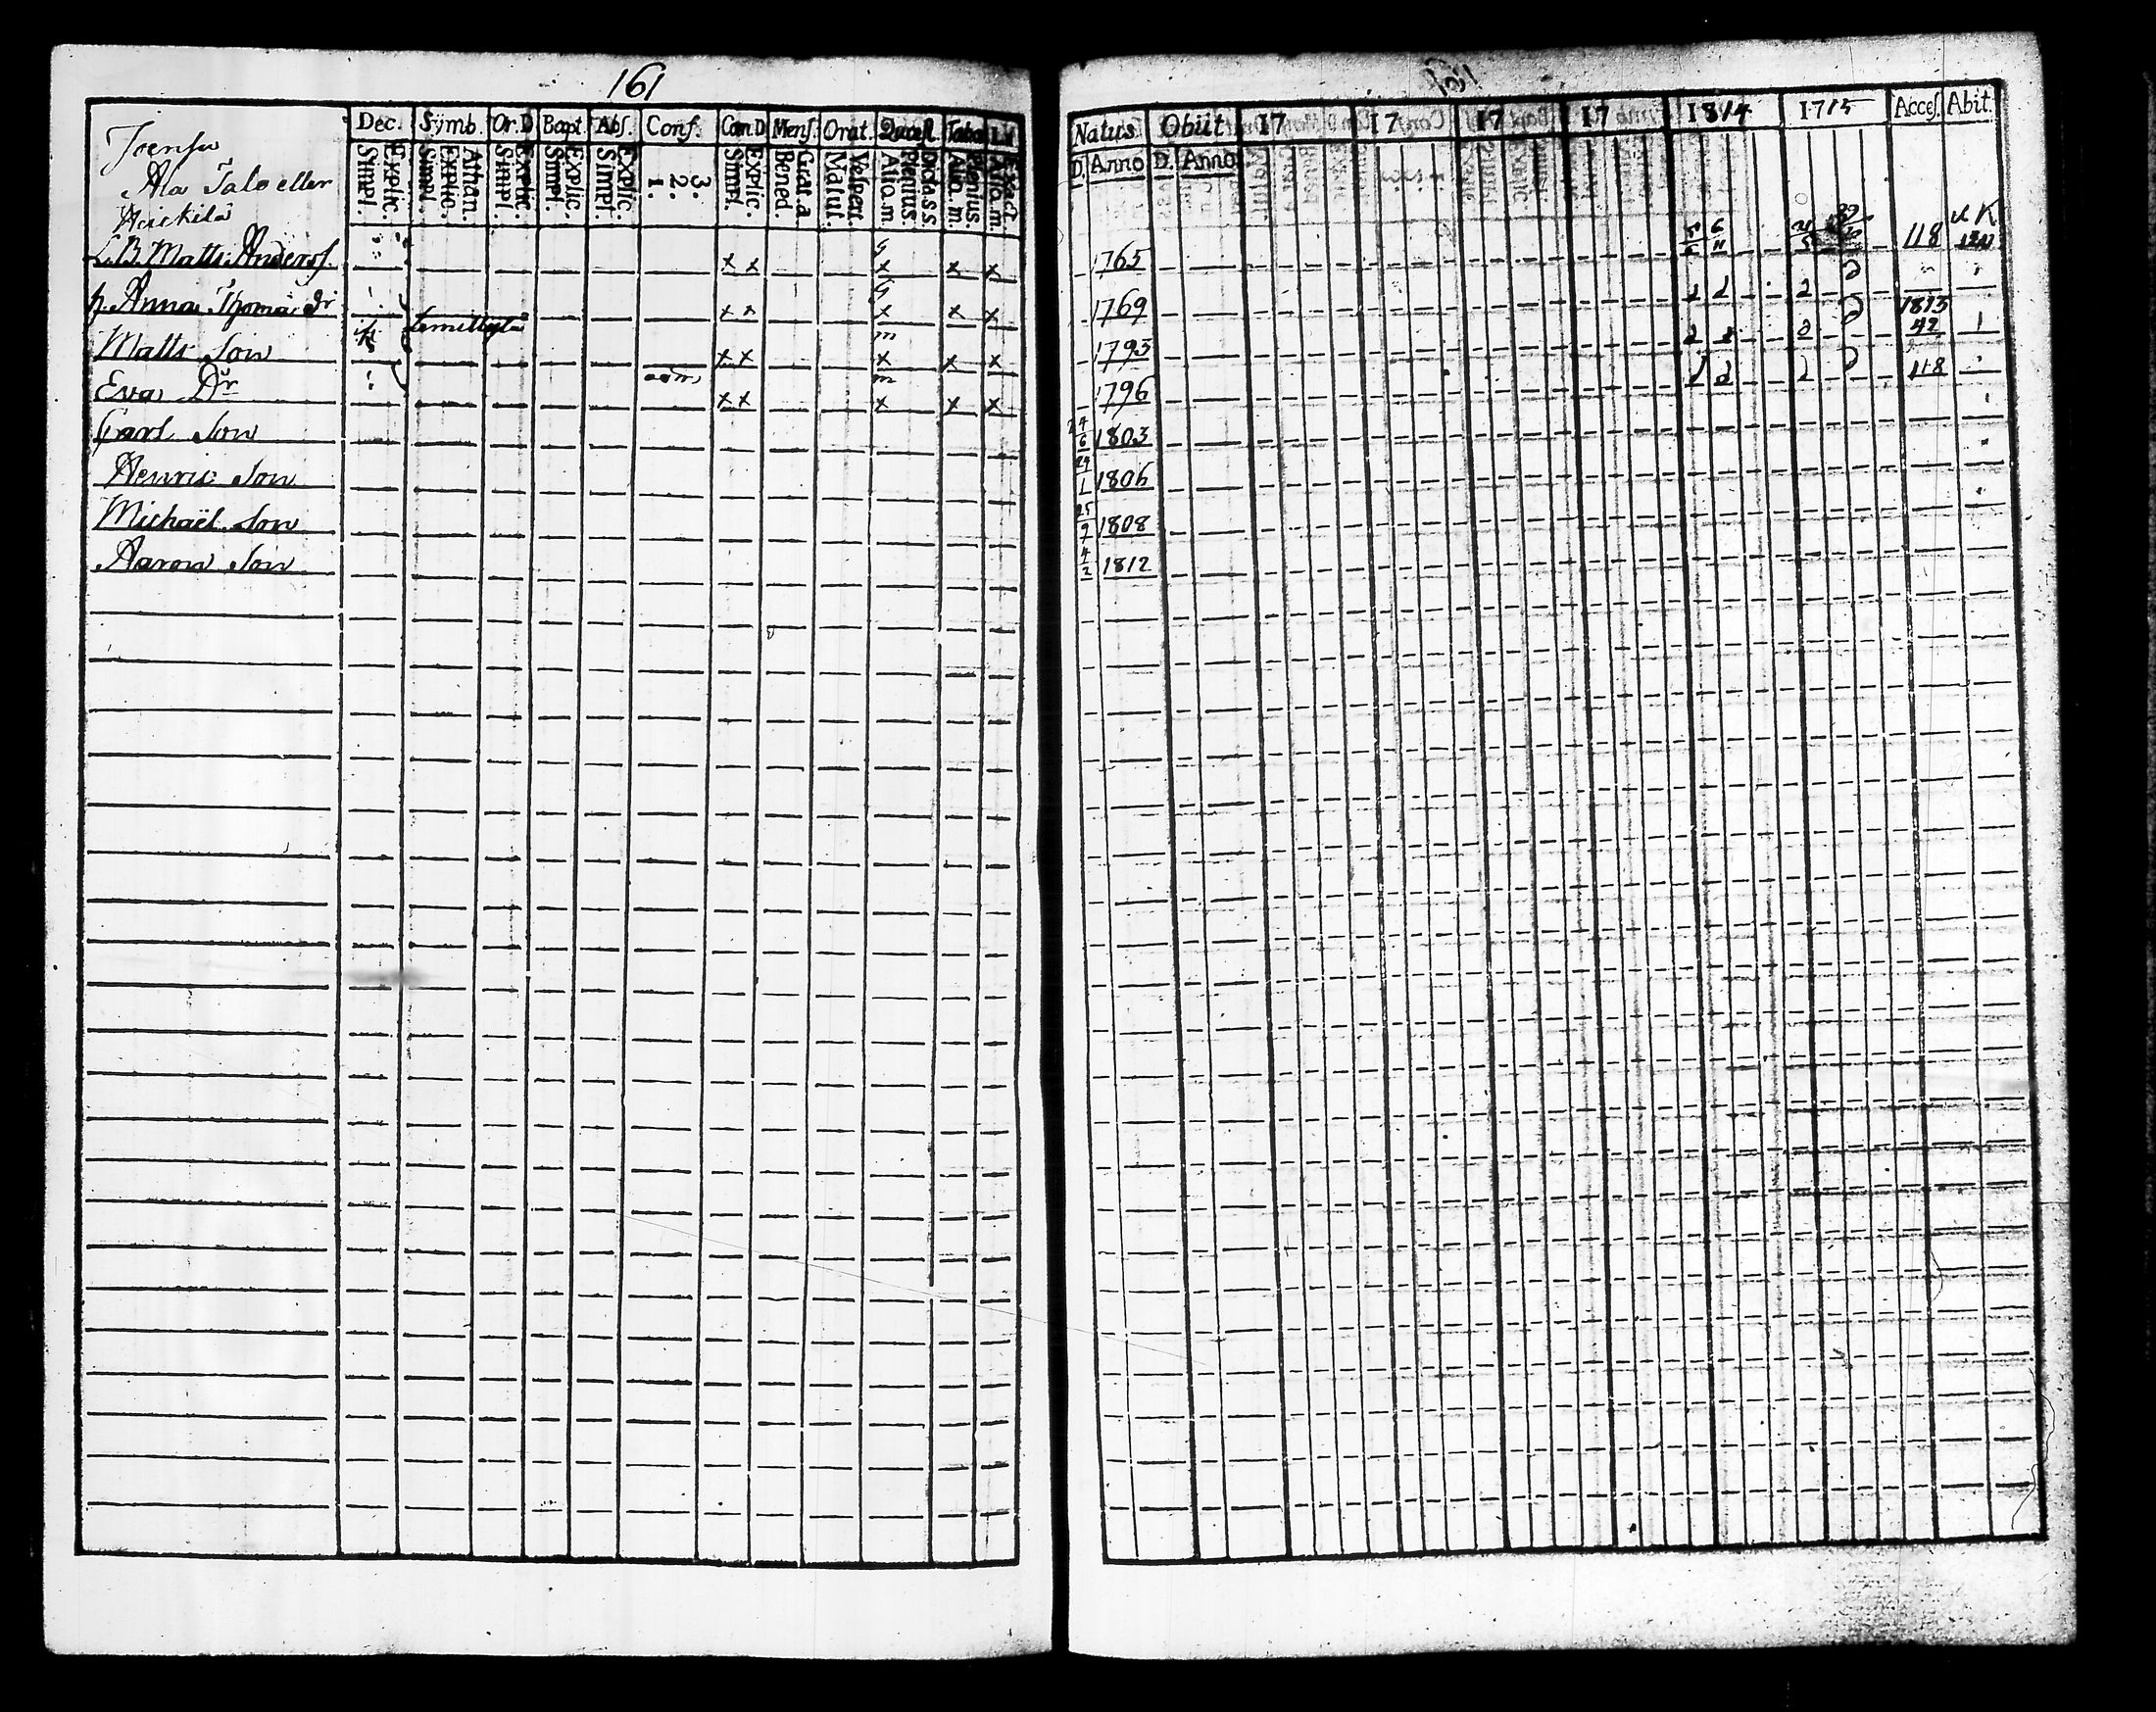 161
Dec. Symb. Or.D Bapt. Abs. Conf. Com.D Mens. Orat. Quæst. Taba
Simpl. Explic. Simpl. Explic. Athan. Simpl. Explic. Simpl. Explic. Simpl. Explic. 1. 2. 3. Simpl. Explic. Bened. Grat.a Matut. Vesper. Aliq.m. Plenius. Dicta.s.s. Aliq.m. Plenius. Exact
Joensu
Ala Talo eller
Matts Anders.
x x x x x
h. Anna Thomä Dr
x x x x x
Matts Son
m x x x x x
Eva Dr
m x x x x x
Carl Son
Henric Son
Michaël Son
Aaron Son
Natus. Obiit 17 17 17 17 1814 1715 Acces. Abit.
D. Anno D. Anno
1765 118
1769
1793 1813 42
1796 118
24/6 1803
24/1 1806
25/9 1808
4/2 1812